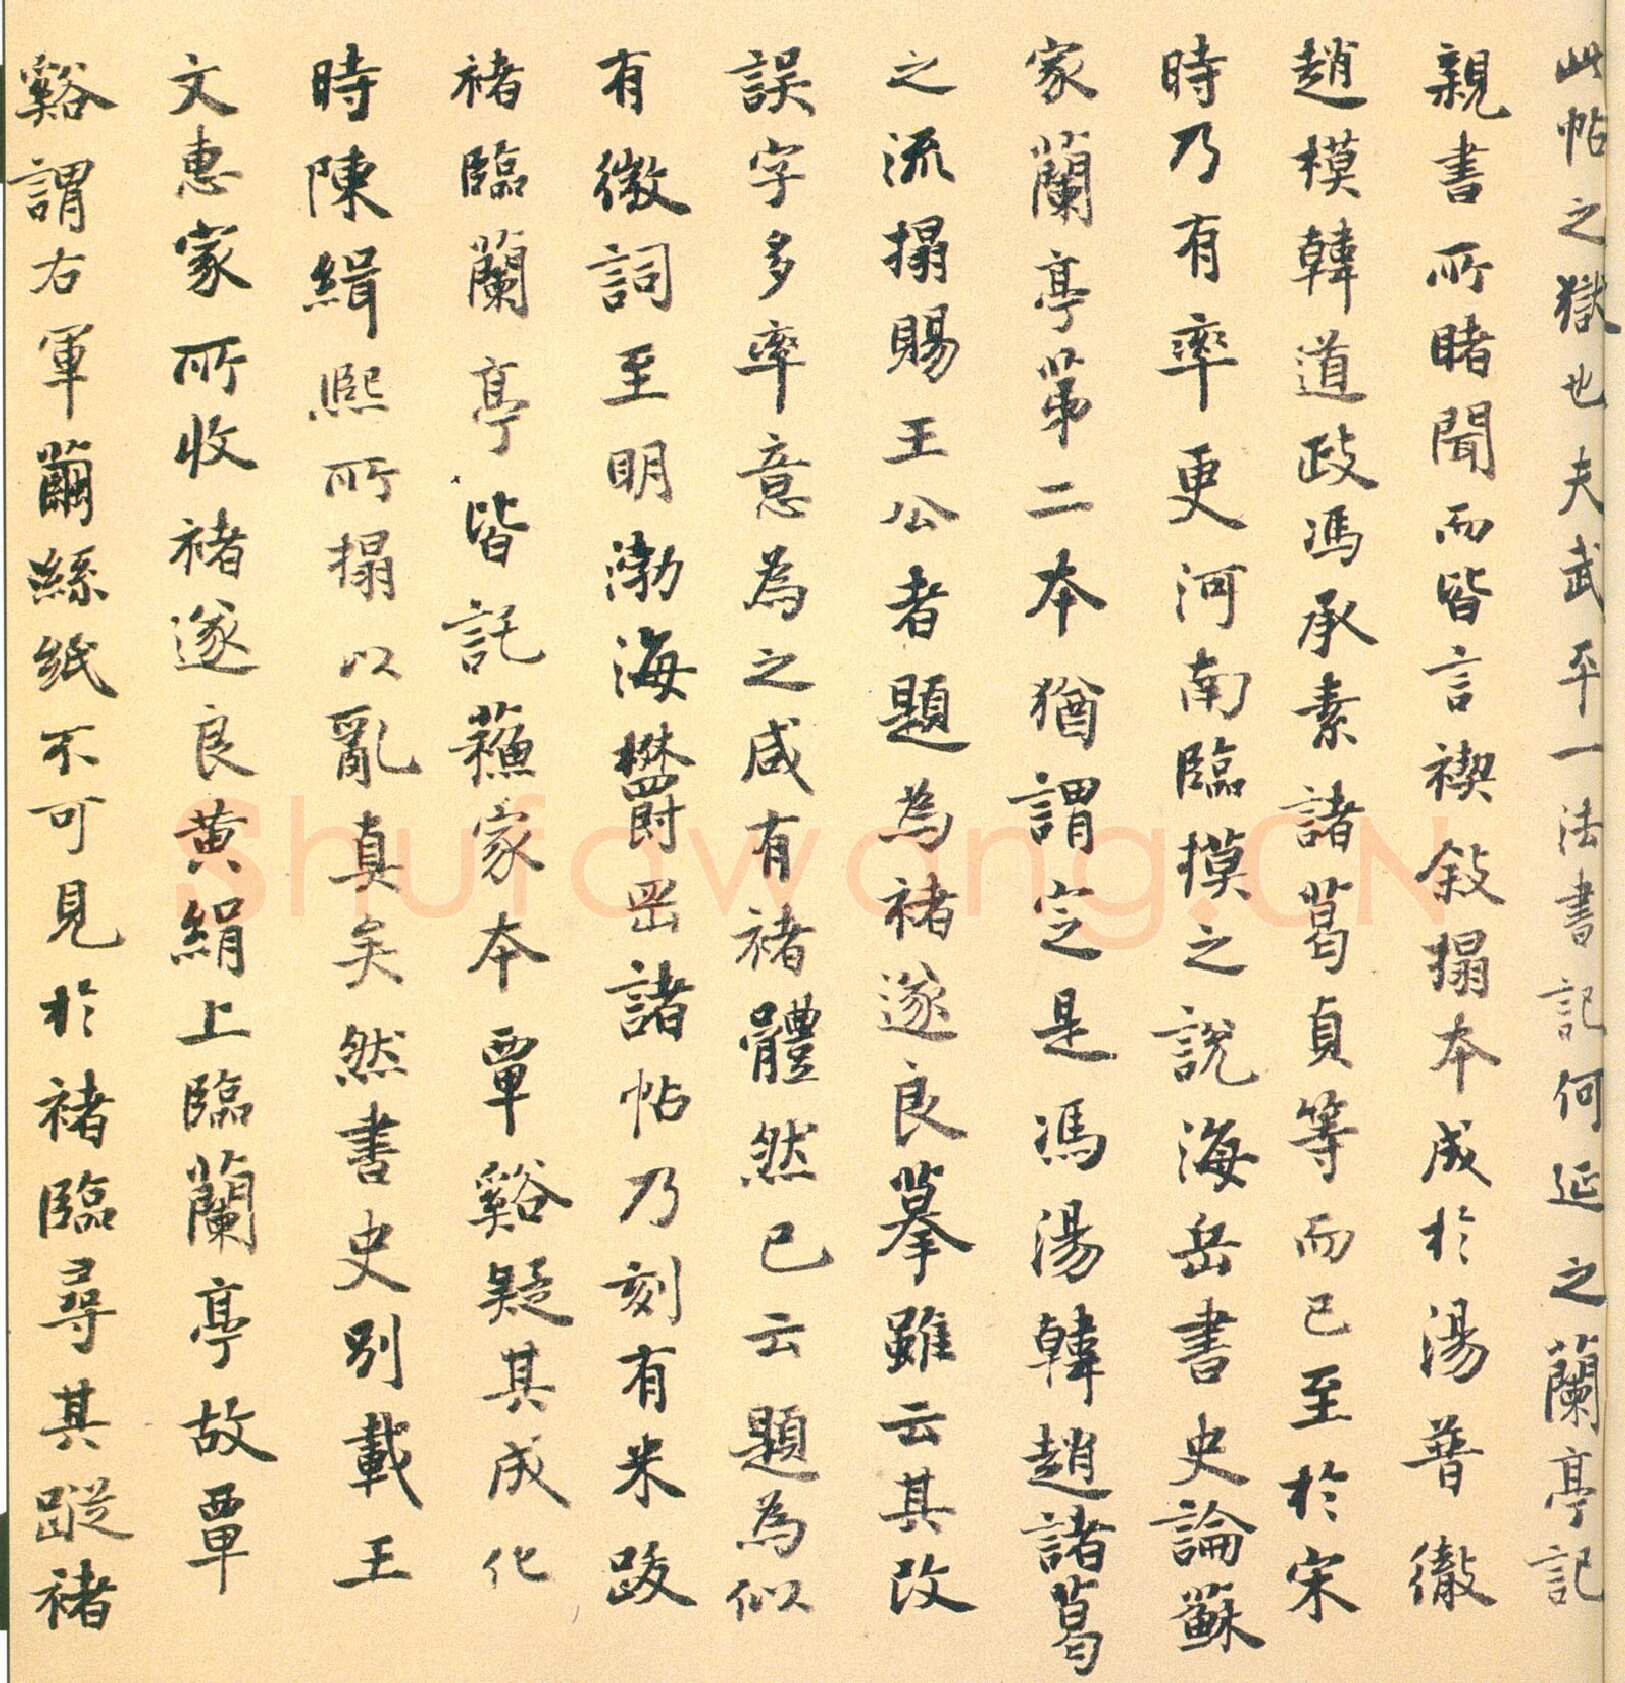 此帖之獄也夫武平一法書記何延之蘭亭記
親書所睹聞而皆言禊敘搨本成於湯普徹
趙模韓道政馮承素諸葛貞等而已至於宋
時乃有率更河南臨摸之說海岳書史論蘇
家蘭亭第二本猶謂定是馮湯韓趙諸葛
之流搨賜王公者題為褚遂良摹雖云其改
誤字多率意為之咸有褚體然已云題為似
有微詞至明渤海欝罡諸帖乃刻有米跋
褚臨蘭亭皆託蘓家本覃谿疑其成化
時陳緝熙所搨以亂真矣然書史別載王
文惠家所收褚遂良黃絹上臨蘭亭故覃
谿謂右軍繭絲紙不可見於褚臨尋其蹤褚
Shufawang.CN